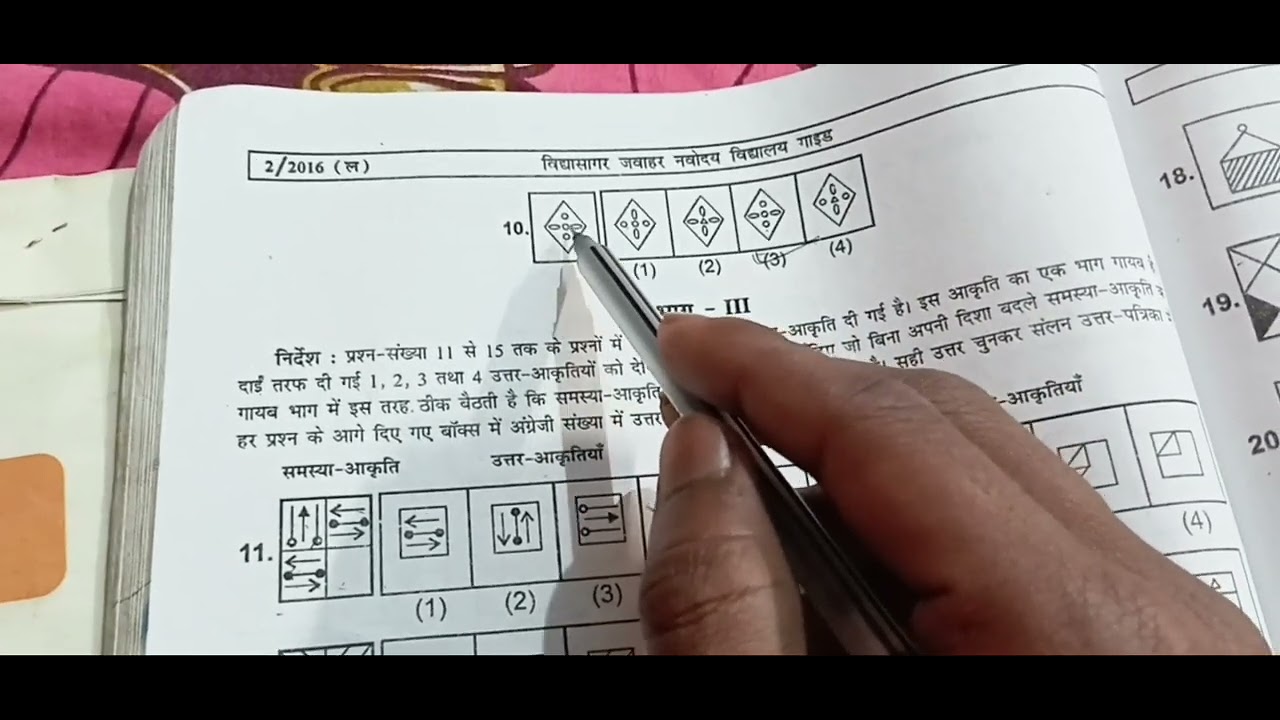 2/2016 (ल) विद्यासागर जवाहर नवोदय विद्यालय गाइड
10.
(1) (2) (3) (4)
भाग - III
निर्देश : प्रश्न-संख्या 11 से 15 तक के प्रश्नों में -आकृति दी गई है। इस आकृति का एक भाग गायब है
दाईं तरफ दी गई 1, 2, 3 तथा 4 उत्तर-आकृतियों को जो बिना अपनी दिशा बदले समस्या-आकृति
गायब भाग में इस तरह ठीक बैठती है कि समस्या-आकृति है। सही उत्तर चुनकर संलन उत्तर-पत्रिका
हर प्रश्न के आगे दिए गए बॉक्स में अंग्रेजी संख्या में उत्तर
समस्या-आकृति उत्तर-आकृतियाँ -आकृतियाँ
11.
(1) (2) (3) (4)
18.
19.
20